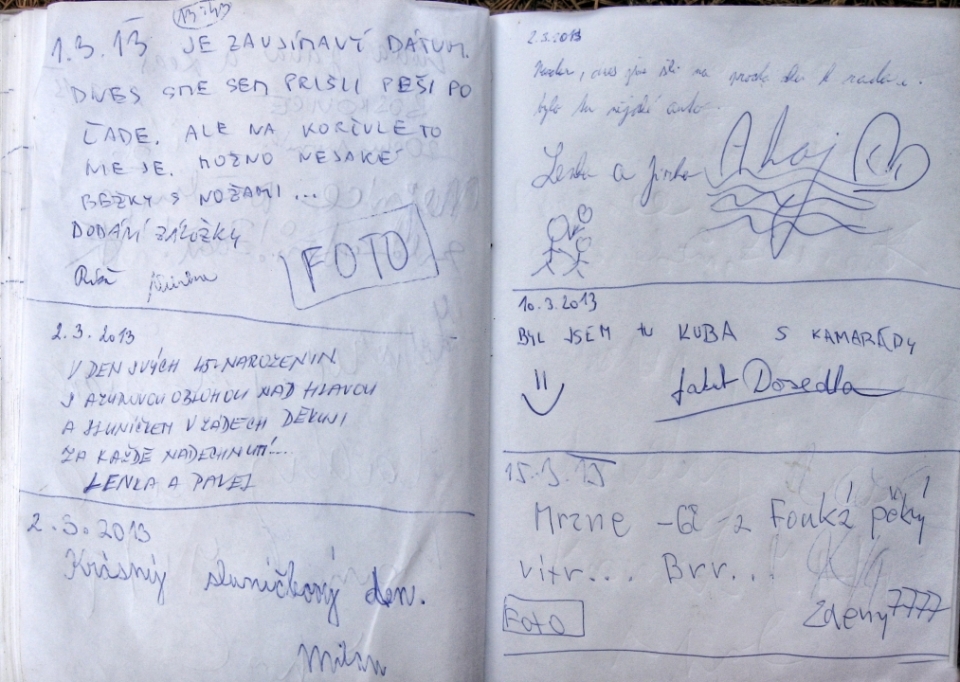 13:43
1.3.13 JE ZAUJÍMAVÝ DÁTUM.
DNES SME SEM PRIŠLI PEŠI PO
ĽADE. ALE NA KORČULE TO
NIE JE. MOŽNO NEJAKÉ
BEŽKY S NOŽAMI...
DODÁNÍ ZÁLOŽKY
FOTO
2.3.2013
V DEN SVÝCH 45. NAROZENIN
S AZUROVOU OBLOHOU NAD HLAVOU
A SLUNÍČKEM V ZÁDECH DĚKUJI
ZA KAŽDÉ NADECHNUTÍ...
LENKA A PAVEL
2.3.2013
Krásný sluníčkový den.
Milan
2.3.2013
Lenka a Jirka
Ahoj
10.3.2013
BYL JSEM tu KUBA S KAMARÁDY
Jakub Dosedla
15.3.13
Mrzne Fouká pěkný
vítr... Brr...
FOTO
Zdeny7777